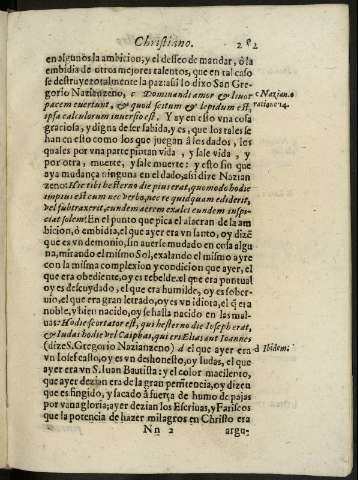 Christiano. 282
en algunos la ambicion, y el desseo de mandar, ò la
embidia de otros mejores talentos, que en tal caso
se destruye totalmente la paz: assi lo dixo San Gre-
gorio Nazianzeno, c Dominandi amor & liuor
pacem euertunt, & quod scitum & lepidum est,
ipsa calculorum inuersio est. Y ay en esto vna cosa
graciosa, y digna de ser sabida, y es, que los tales se
han en esto como los que juegan à los dados, les
quales por vna parte pintan vida, y sale vida, y
por otra, muerte, y sale muerte: y esto sin que
aya mudança ninguna en el dado, assi dize Nazian
zeno: Hic tibi hesterno die pius erat, quomodo hodie
impius est cum nec verbo, nec re quidquam ediderit,
vel subtraxerit, eundem aerem exalet eundem inspi-
ciat solem? En el punto que pica el alacran de la am
bicion, ò embidia, el que ayer era vn santo, oy dizẽ
que es vn demonio, sin auerse mudado en cosa algu
na, mirando el mismo Sol, exalando el mismo ayre
con la misma complexion y condicion que ayer, el
que era obediente, oy es rebelde. el que era puntual
oy es descuydado, el que era humilde, oy es sober-
uio, el que era gran letrado, oy es vn idiota, el q̃ era
noble, y bien nacido, oy se halla nacido en las mal-
uas: Hodie scortator est, qui hesterno die Ioseph erat,
& Iudas hodie vel Caiphas, qui eri Elias aut Ioannes
(dize S. Gregorio Nazianzeno) d el que ayer era
vn Iosef casto, oy es vn deshonesto, oy Iudas, el que
ayer era vn S. Iuan Bautista: y el color macilento,
que ayer dezian era de la gran penitencia, oy dizen
que es fingido, y sacado à fuerça de humo de pajas
por vanagloria; ayer dezian los Escriuas, y Fariseos
que la potencia de hazer milagros en Christo era
Nn 2 argu-
c Nazian. o
ratione 14.
d Ibidem.